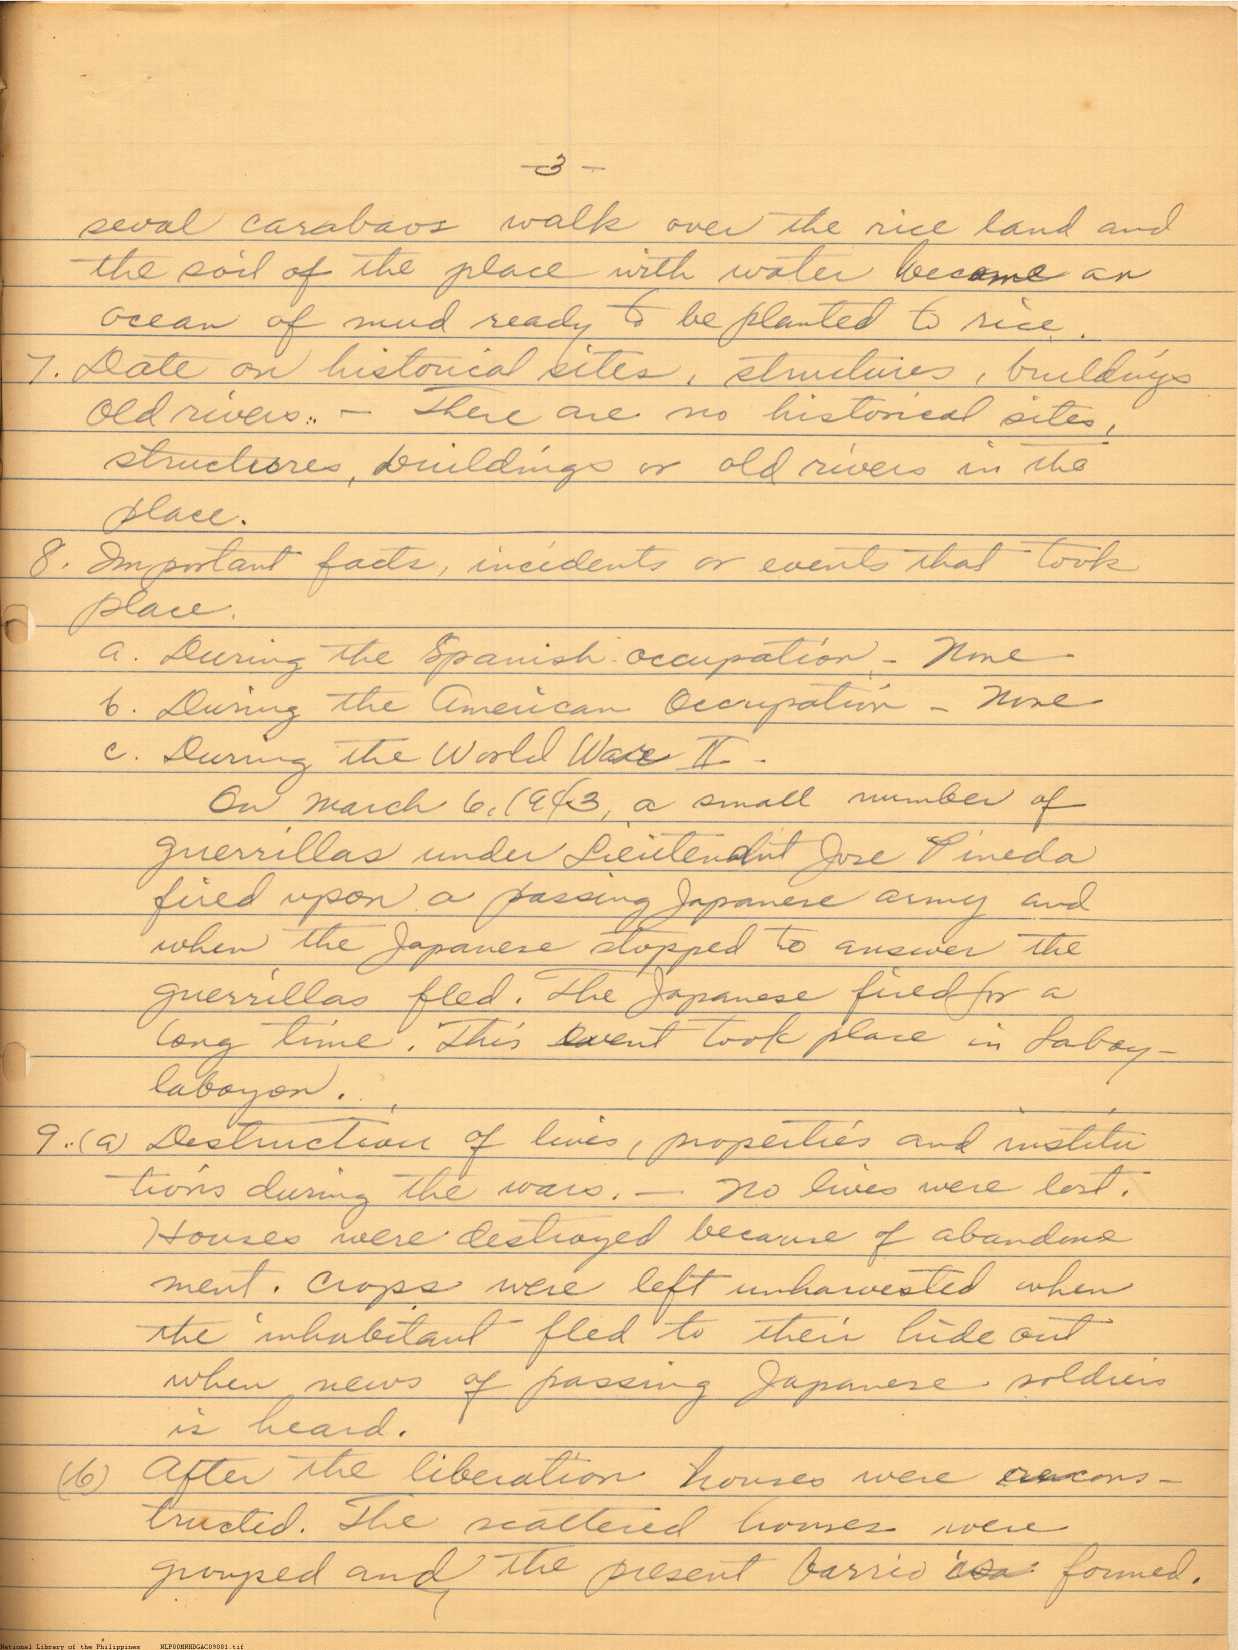 - 3 -
seval carabaos walk over the rice land and
the soil of the place with water become an
ocean of mud ready to be planted to rice.
7. Date on historical sites, structures, buildings
old rivers.. - There are no historical sites,
structures, buildings or old rivers in the
place.
8. Important facts, incidents or events that took
place.
a. During the Spanish occupation - None
b. During the American Occupation - None
c. During the World War II -
On March 6, 1943, a small number of
guerrillas under Lieutenant Jose Pineda
fired upon a passing Japanese army and
when the Japanese stopped to answer the
guerrillas fled. The Japanese fired for a
long time. This event took place in Labay-
laboyon.
9..(a) Destruction of lives, properties and institu
tions during the wars. - No lives were lost.
Houses were destroyed because of abandone
ment. Crops were left unharvested when
the inhabitant fled to their hide out
when news of passing Japanese soldiers
is heard.
(b) After the liberation houses were recons-
tructed. The scattered houses were
grouped and, the present barrio formed.
National Library of the Philippines NLP00MRHDGAC09081.tif